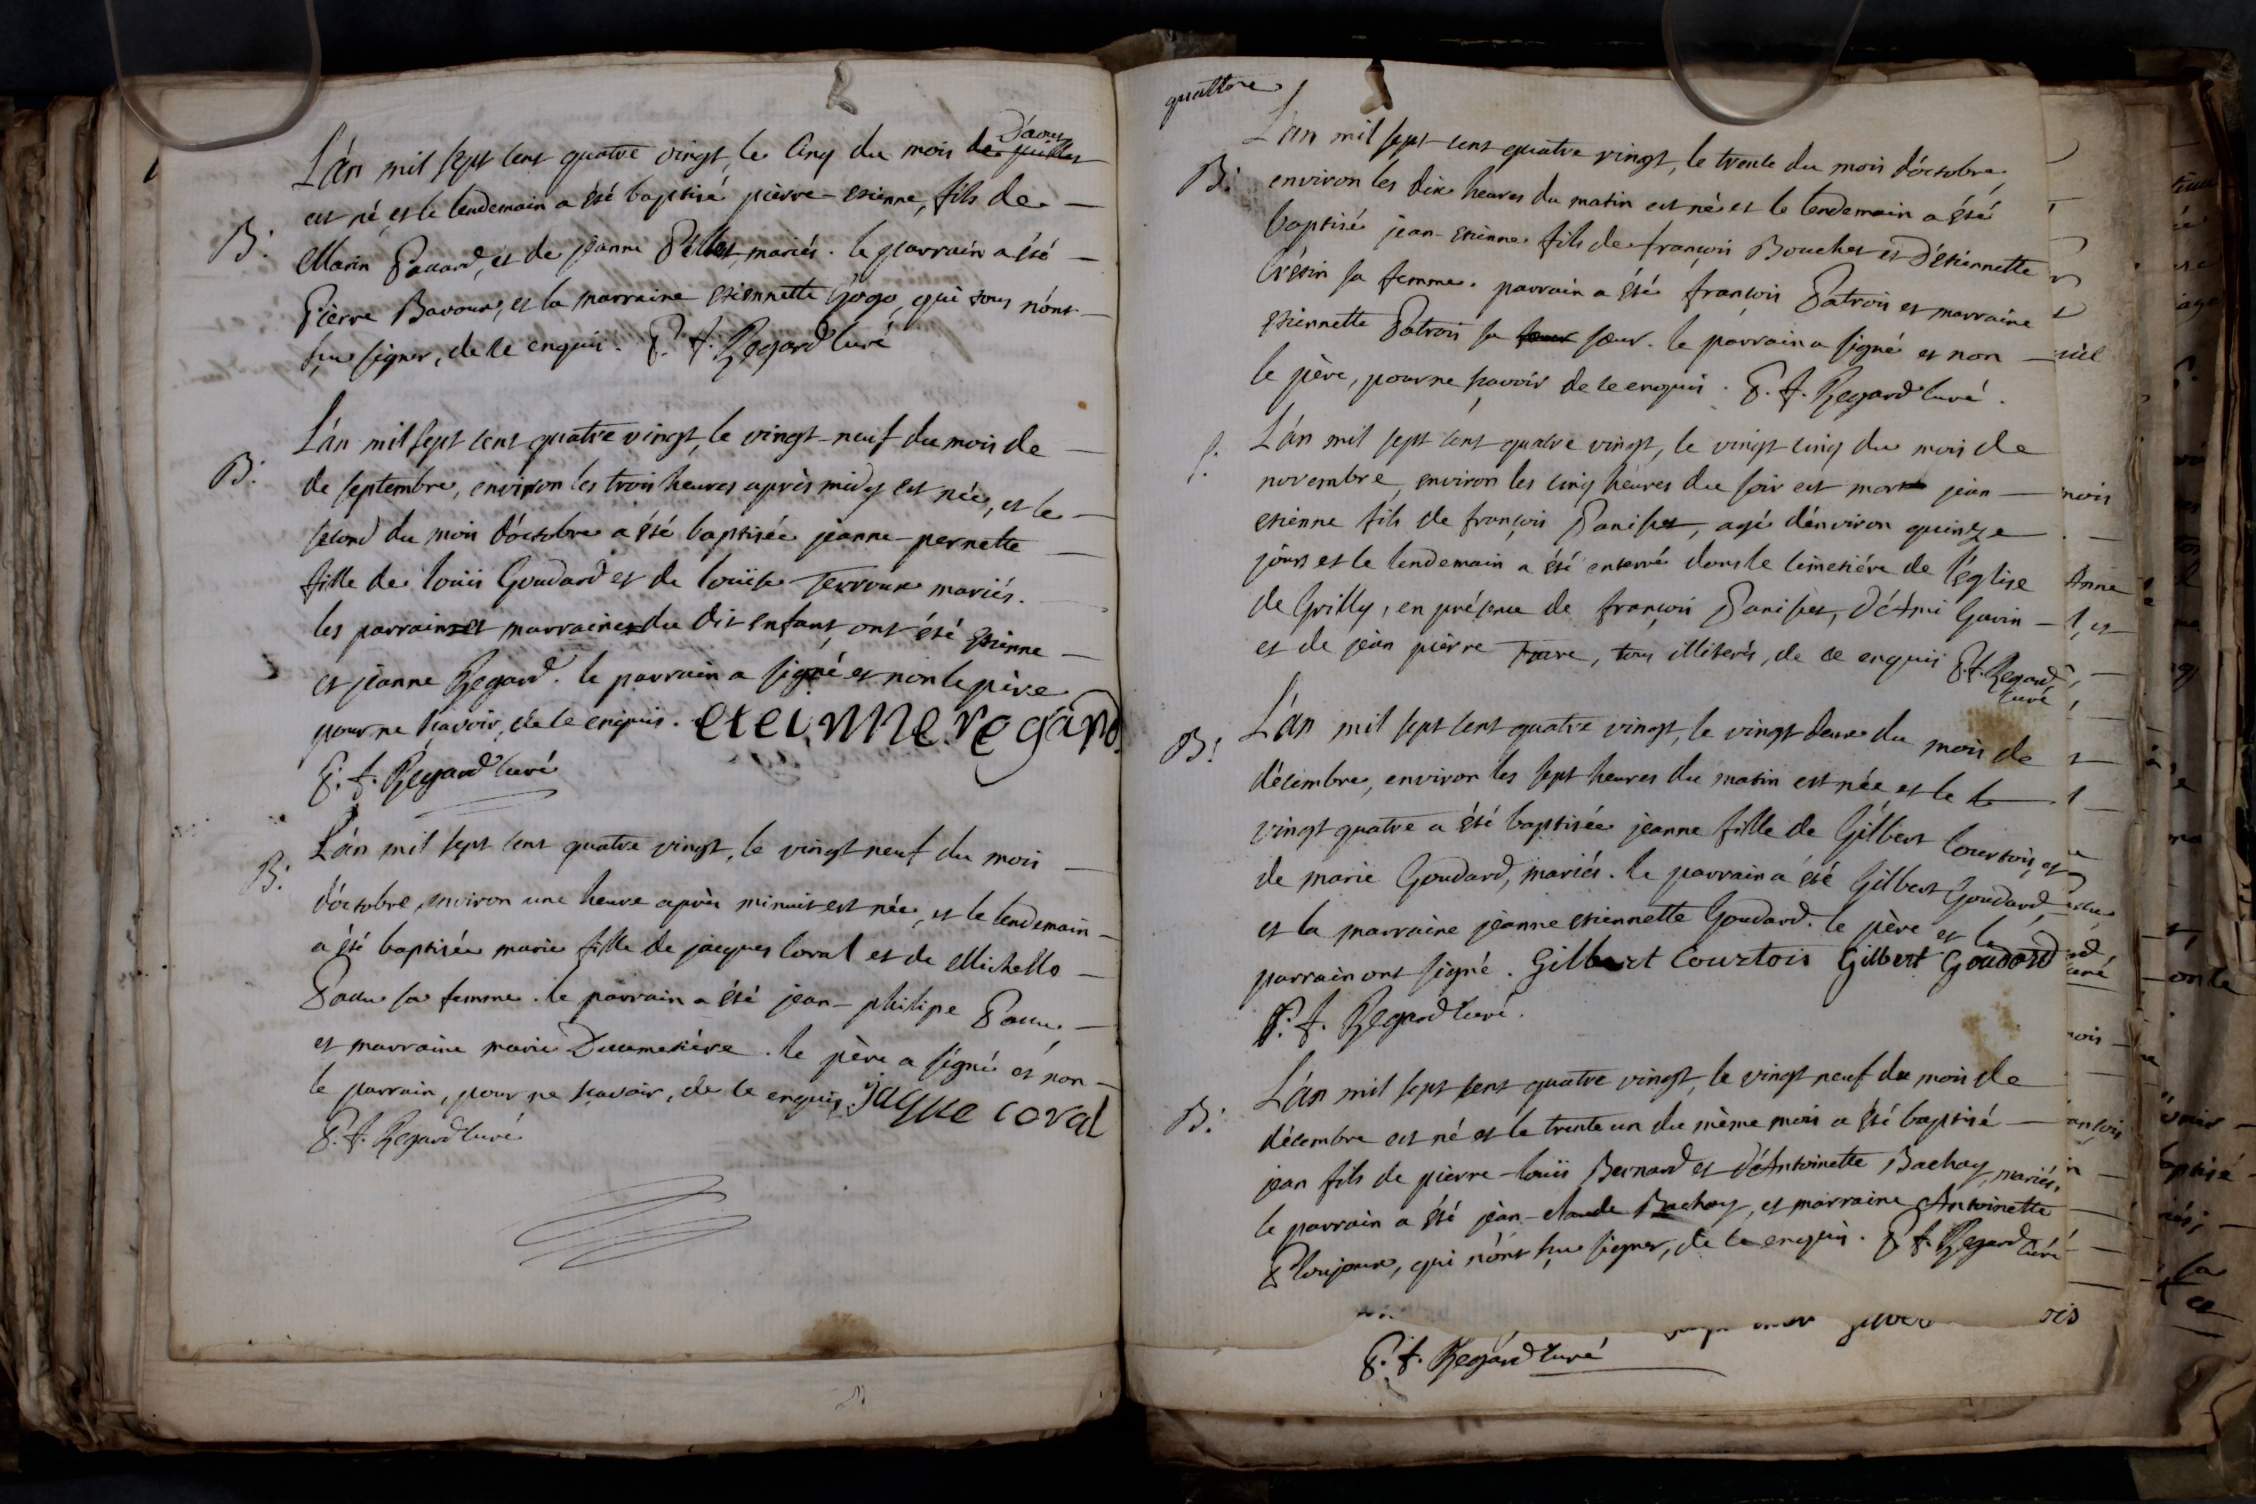 L'an mil sept cent quatre vingt, le cinq du mois de juillet d'aout
est né, et le lendemain a été baptisé pierre-etienne, fils de
B. Marin Pauard, et de jeanne Pellet, mariés. le parrain a été
Pierre Bavoux, et la marraine etiennette Gogo, qui tous n'ont
sçu signer, de ce enquis. P. f. Regard curé
L'an mil sept cent quatre vingt, le vingt-neuf du mois de
B. de septembre, environ les trois heures après midy est née, et le
second du mois d'octobre a été baptisée jeanne-pernette
fille de louis Goudard et de louise Terroux mariés.
les parrain et marraine du dit enfant, ont été Etienne
et jeanne Regard. le parrain a signé et non le père
pour ne sçavoir, de ce enquis. eteinne regard
P. f. Regard curé
L'an mil sept cent quatre vingt, le vingt neuf du mois
B. d'octobre, environ une heure après minuit est née, et le lendemain
a été baptisée marie fille de jacques Coral et de Michelle
Pauu sa femme. le parrain a été jean-philipe Pauu,
et marraine marie Ducimetière. le père a signé et non
le parrain, pour ne sçavoir, de ce enquis, jaque coral
P. f. Regard curé
quattore
L'an mil sept cent quatre vingt, le trente du mois d'octobre,
B. environ les dix heures du matin est né et le lendemain a été
baptisé jean-etienne fils de françois Bouchet et d'etiennette
Crétin sa femme. parrain a été françois Patrois et marraine
etiennette Patrois sa soeur. le parrain a signé et non
le père, pour ne sçavoir de ce enquis. P. f. Regard curé.
L'an mil sept cent quatre vingt, le vingt cinq du mois de
novembre, environ les cinq heures du soir est mort jean
etienne fils de françois Panisset, agé d'environ quinze
jours et le lendemain a été enterré dans le cimetière de l'église
de Grilly, en présence de françois Panisset, d'Ami Gavin
et de jean pierre Favre, tous illiterés, de ce enquis P. f. Regard
curé
B. L'an mil sept cent quatre vingt, le vingt deux du mois de
décembre, environ les sept heures du matin est née et le
vingt quatre a été baptisée jeanne fille de Gilbert Courtois, et
de marie Goudard, mariés. le parrain a été Gilbert Goudard
et la marraine jeanne etiennette Goudard. le père et le
parrain ont signé. Gilbert Courtois Gilbert Goudard
P. f. Regard curé.
L'an mil sept cent quatre vingt, le vingt neuf du mois de
B. décembre est né et le trente un du même mois a été baptisé
jean fils de pierre-louis Bernard et d'Antoinette Bachay, mariés,
le parrain a été jean-claude Bachay, et marraine Antoinette
Ploujoux, qui n'ont sçu signer, de ce enquis. P. f. Regard curé
P. f. Regard curé